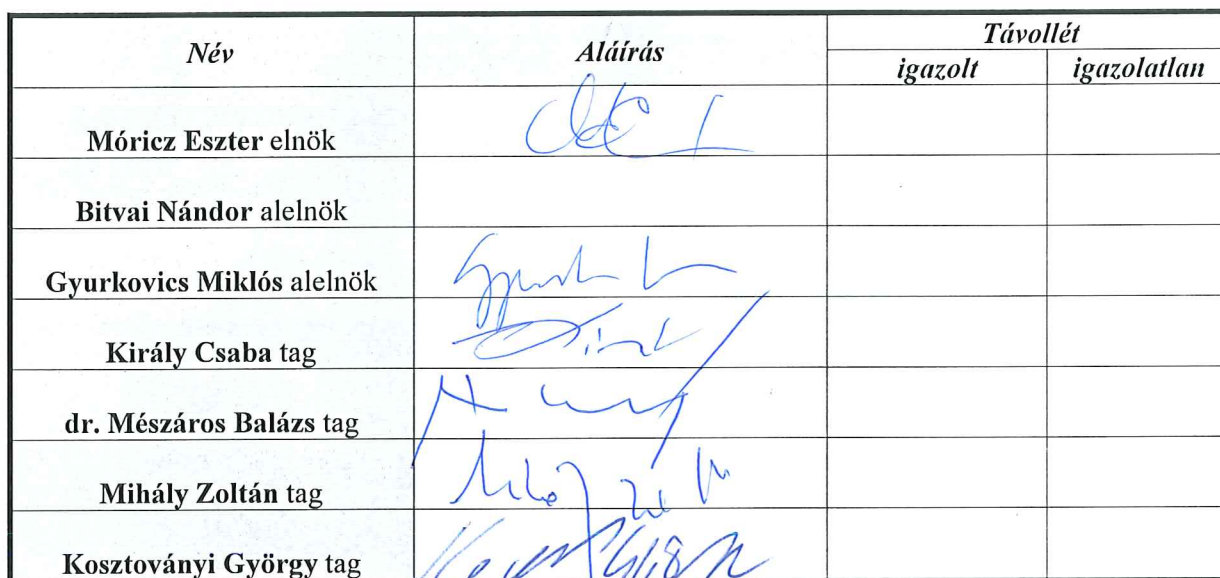 Név Aláírás Távollét
igazolt igazolatlan
Móricz Eszter elnök
Bitvai Nándor alelnök
Gyurkovics Miklós alelnök
Király Csaba tag
dr. Mészáros Balázs tag
Mihály Zoltán tag
Kosztoványi György tag